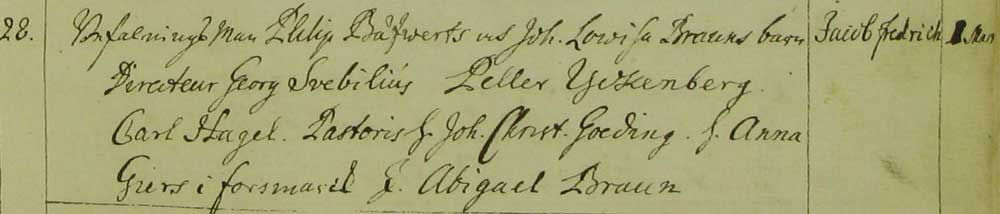 28. Befalnings Man Philip Båfwerts ux Joh. Lowisa Brauns barn Jacob fredrich 1 Mars
Directeur Georg Svebilius Peller Yckenberg.
Carl Hagel. Pastoris h. Joh. Christ. Goeding. h. Anna
Giers i forsmarck J. Abigael Braun